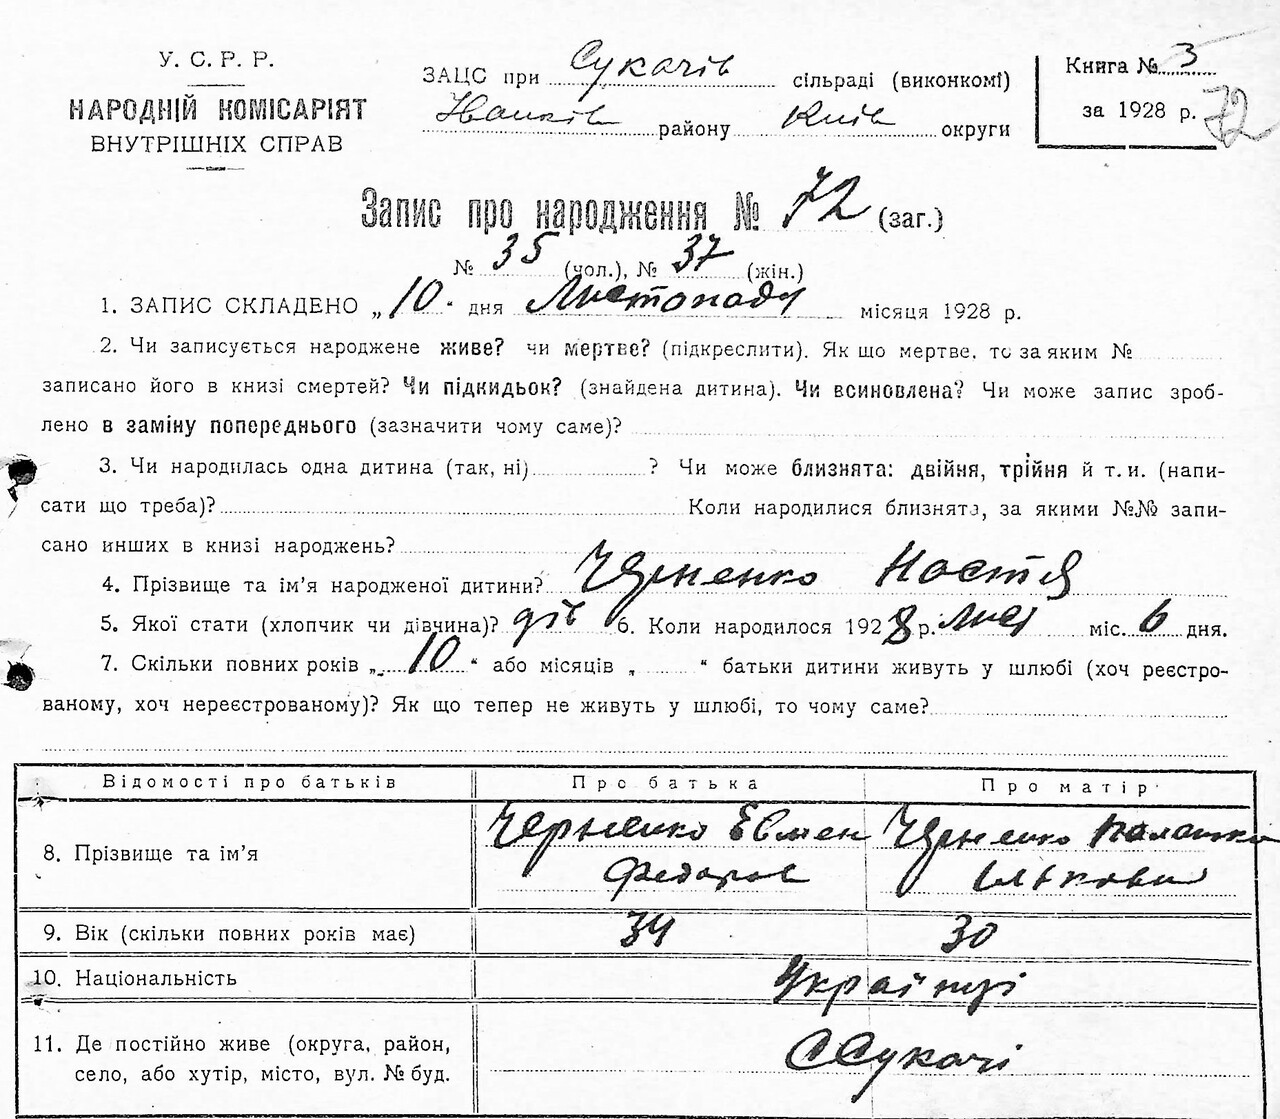 У. С. Р. Р.
НАРОДНІЙ КОМІСАРІЯТ
ВНУТРІШНІХ СПРАВ
ЗАЦС при Сукачів сільраді (виконкомі)
Іванків району Київ округи
Книга № 3
за 1928 р. 72
Запис про народження № 72 (заг.)
№ 35 (чол.), № 37 (жін.)
1. ЗАПИС СКЛАДЕНО „10" дня Листопаду місяця 1928 р.
2. Чи записується народжене живе? чи мертве? (підкреслити). Як що мертве, то за яким №
записано його в книзі смертей? Чи підкидьок? (знайдена дитина). Чи всиновлена? Чи може запис зроб-
лено в заміну попереднього (зазначити чому саме)?
3. Чи народилась одна дитина (так, ні) ? Чи може близнята: двійня, трійня й т. и. (напи-
сати що треба)? Коли народилися близнята, за якими №№ запи-
сано инших в книзі народжень?
4. Прізвище та ім'я народженої дитини? Черненко Настя
5. Якої стати (хлопчик чи дівчина)? дів 6. Коли народилося 1928 р. Лист міс. 6 дня.
7. Скільки повних років „ 10 " або місяців „ " батьки дитини живуть у шлюбі (хоч реєстро-
ваному, хоч нереєстрованому)? Як що тепер не живуть у шлюбі, то чому саме?
Відомості про батьків Про батька Про матір
8. Прізвище та ім'я Черненко Евмен Федоров Черненко Палажка Ількова
9. Вік (скільки повних років має) 34 30
10. Національність Українці
11. Де постійно живе (округа, район,
село, або хутір, місто, вул. № буд. С Сукачі